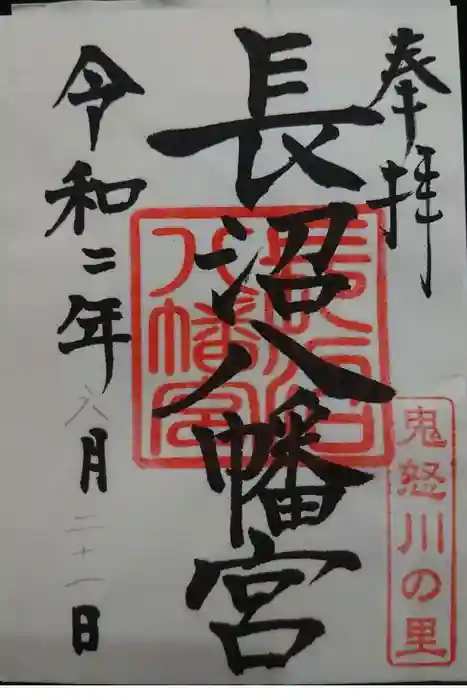 奉拝
長沼八幡宮
長沼八幡宮
鬼怒川の里
令和二年八月二十一日